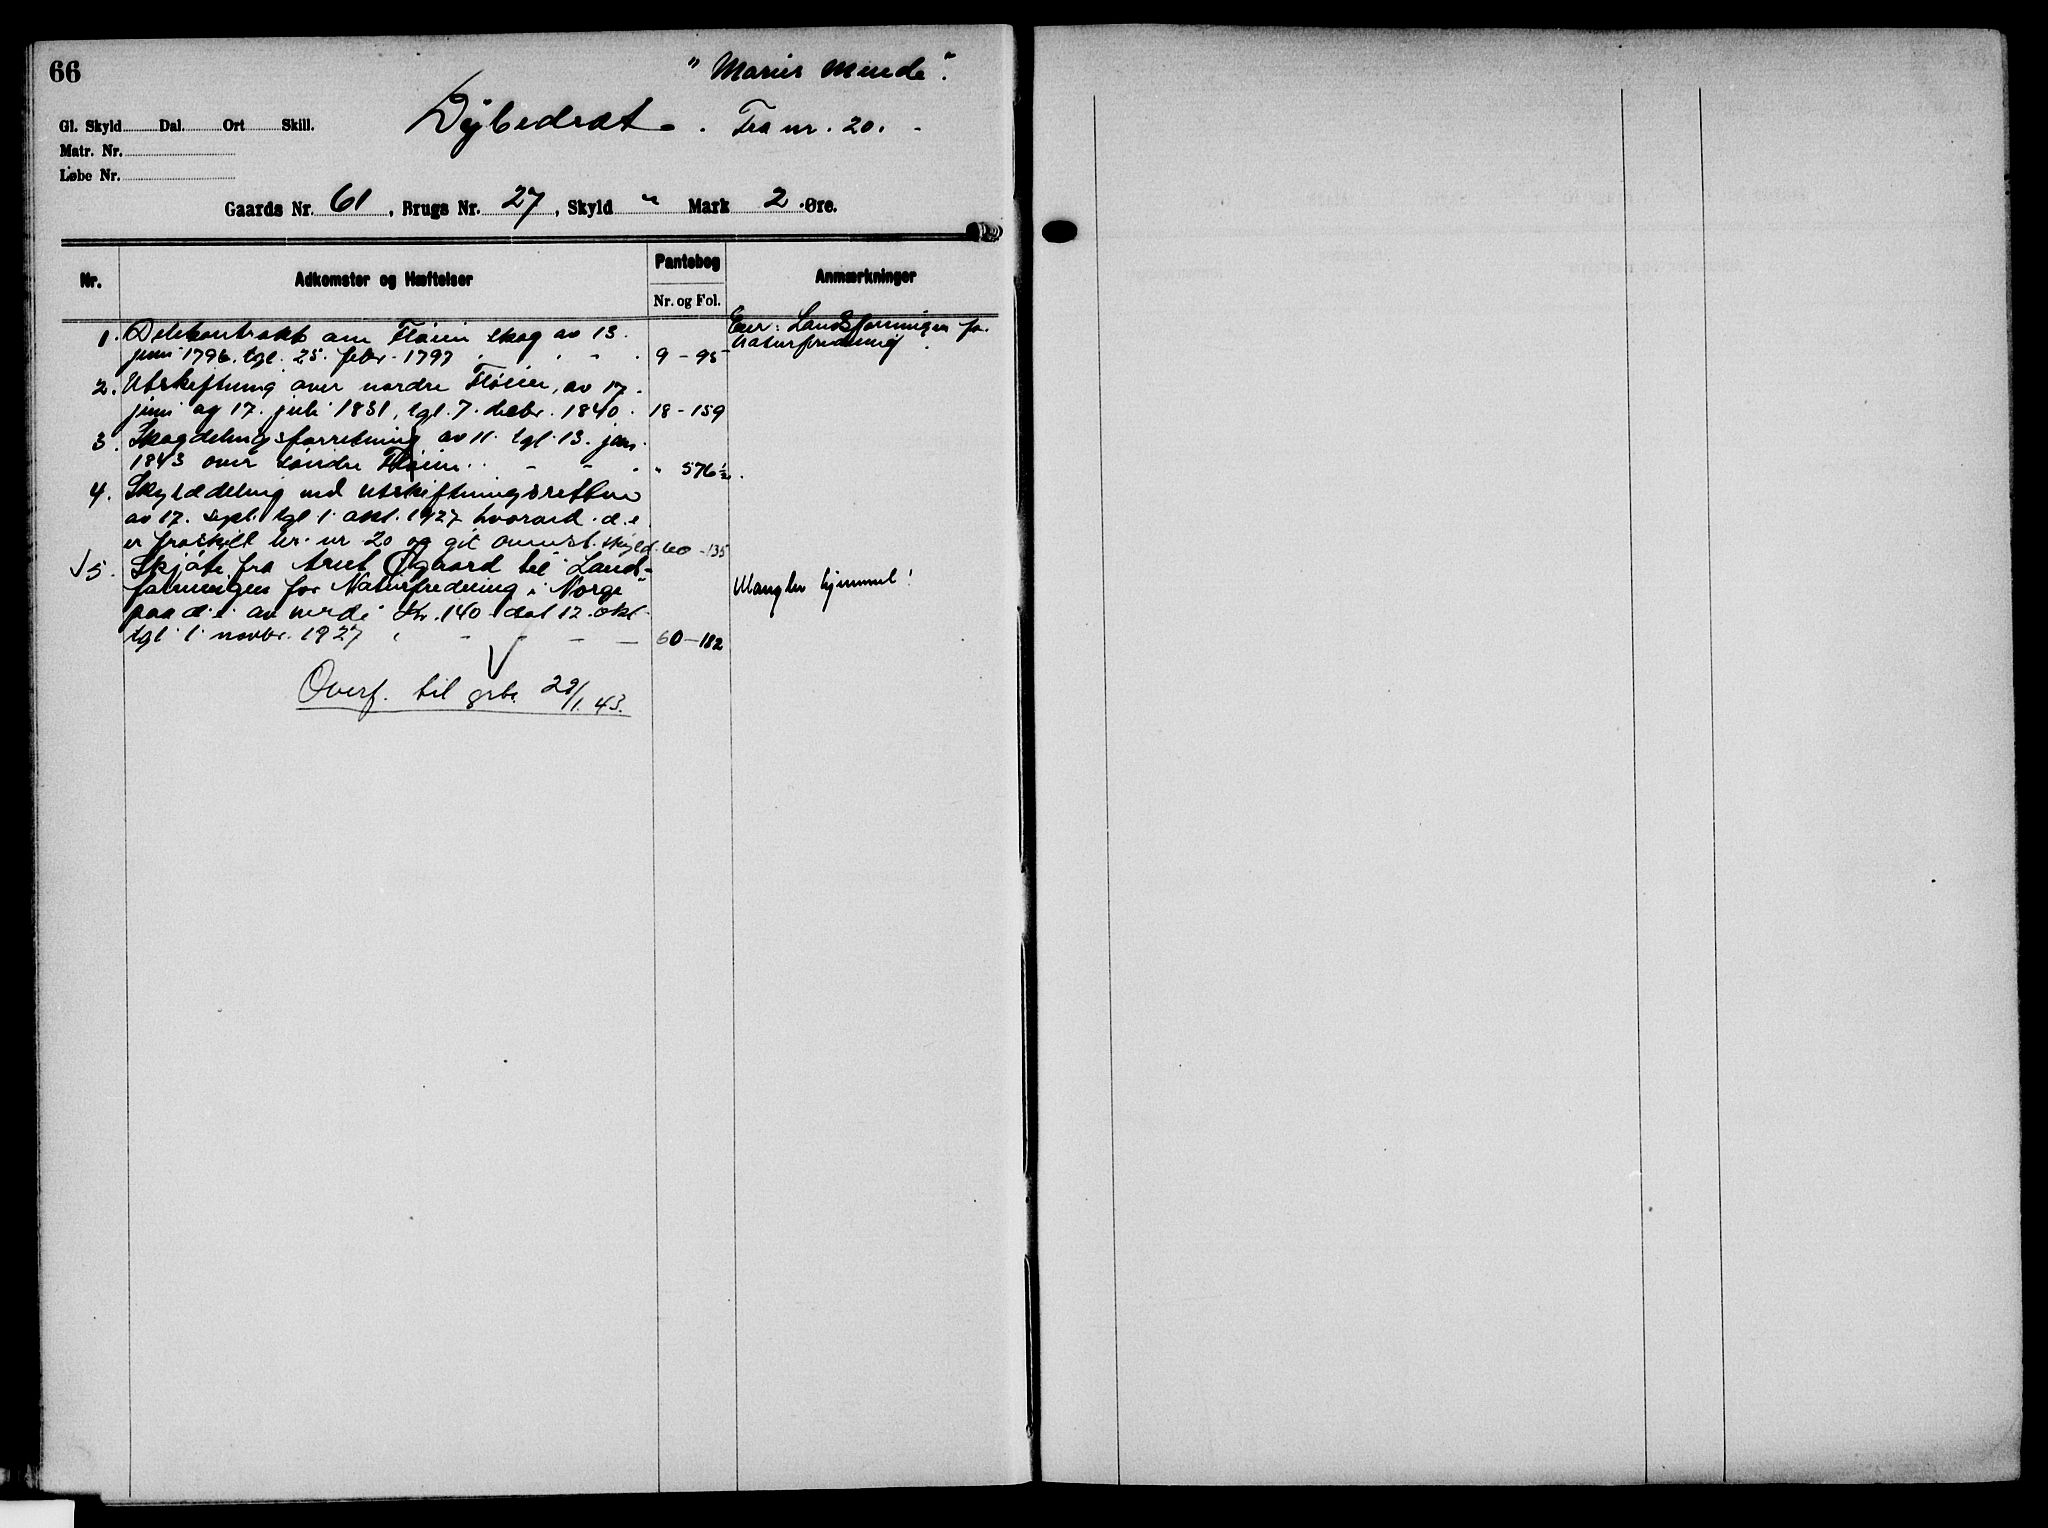 66
"Marius Minde".
Dybedrat. Fra nr. 20.
Gl. Skyld Dal. Ort Skill.
Matr. Nr.
Løbe Nr.
Gaards Nr. 61, Brugs Nr. 27, Skyld " Mark 2 Øre.
Nr. Adkomster og Hæftelser Pantebog Anmærkninger
Nr. og Fol.
1. Delekontrakt om Fløien skog av 13.
juni 1796. tgl. 25. febr. 1797 9-95
Eier: Landsforeningen for
Naturfredning.
2. Utskiftning over nordre Fløien, av 17.
juni og 17. juli 1831, tgl. 7. decbr. 1840. 18-159
3. Skogdelingsforretning av 11. tgl. 13. jan.
1843 over søndre Fløien " 576½.
4. Skylddeling ved utskiftningsretten
av 17. sept. tgl. 1. okt. 1927 hvorved d. e.
er fraskilt br. nr 20 og git ovenst. skyld. 60-135
5. Skjøte fra Aret Øgaard til "Lands-
foreningen for Naturfredning i Norge"
paa d. e. av verdi Kr. 140 dat 12. okt.
tgl. 1. novbr. 1927 60-182
Mangler hjemmel!
Overf. til grb. 29/1.43.